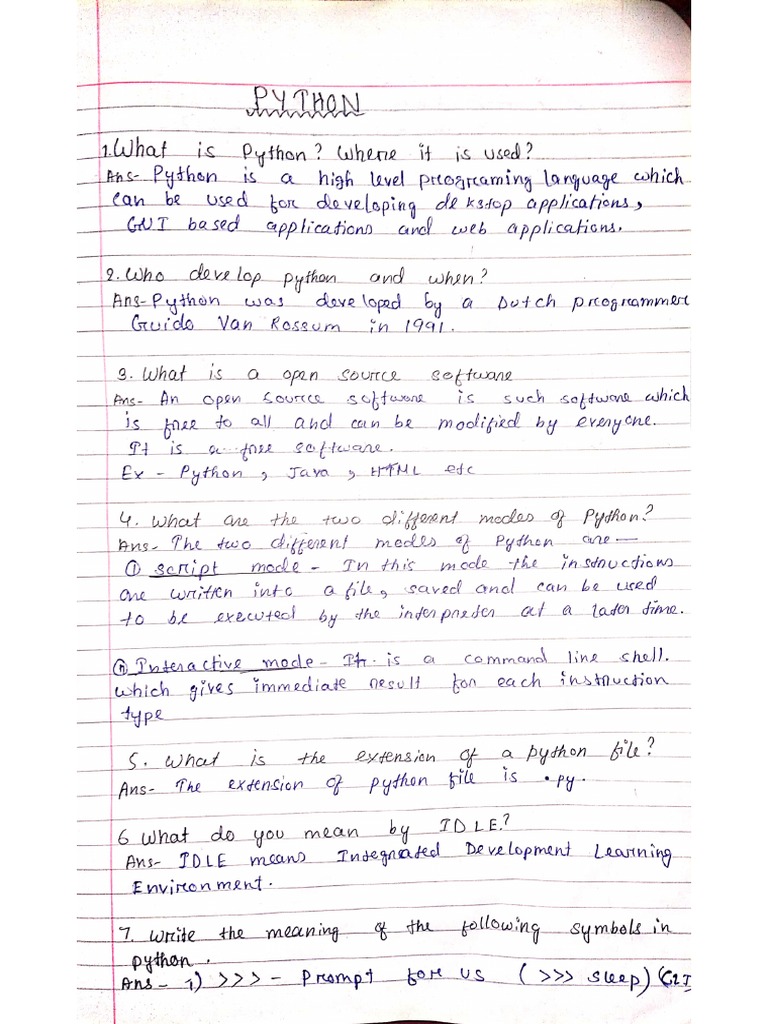 PYTHON
1. What is Python? Where it is used?
Ans- Python is a high level programing language which
can be used for developing dekstop applications,
GUI based applications and web applications.
2. Who develop python and when?
Ans- Python was developed by a Dutch programmer
Guido Van Rossum in 1991.
3. What is a open source software
Ans- An open source software is such software which
is free to all and can be modified by everyone.
It is a free software.
Ex - Python, Java, HTML etc
4. What are the two different modes of Python?
Ans- The two different modes of Python are—
(i) script mode - In this mode the instructions
are written into a file, saved and can be used
to be executed by the interpreter at a later time.
(ii) Interactive mode - It is a command line shell.
which gives immediate result for each instruction
type
5. What is the extension of a python file?
Ans- The extension of python file is .py.
6 What do you mean by IDLE?
Ans- IDLE means Integrated Development Learning
Environment.
7. Write the meaning of the following symbols in
python.
Ans- i) >>> - Prompt for us ( >>> sleep)